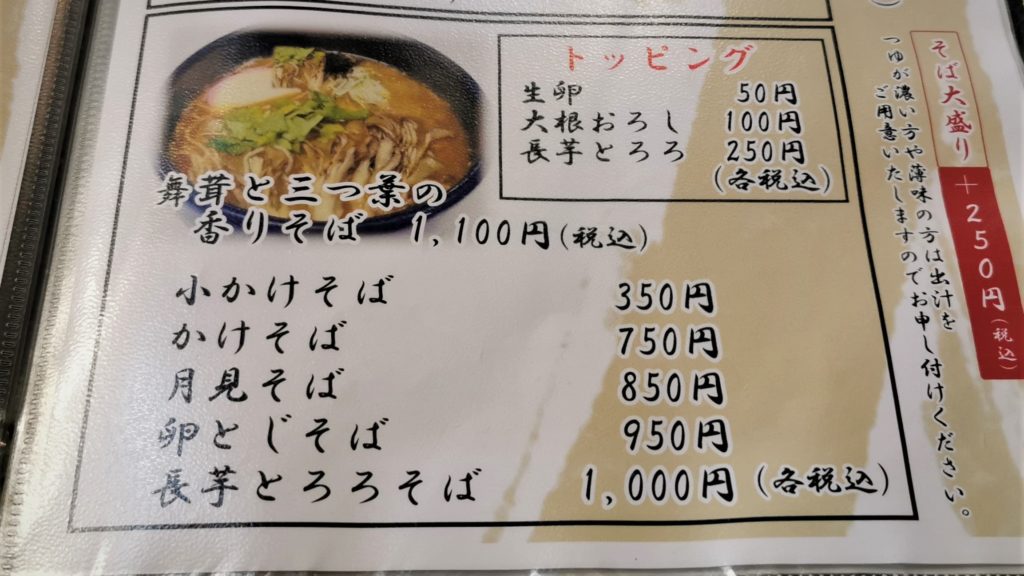 そば大盛り +250円(税込)
つゆが濃い方や薄味の方は出汁を
ご用意いたしますのでお申し付けください。
トッピング
生卵 50円
大根おろし 100円
長芋とろろ 250円
(各税込)
舞茸と三つ葉の
香りそば 1,100円(税込)
小かけそば 350円
かけそば 750円
月見そば 850円
卵とじそば 950円
長芋とろろそば 1,000円(各税込)